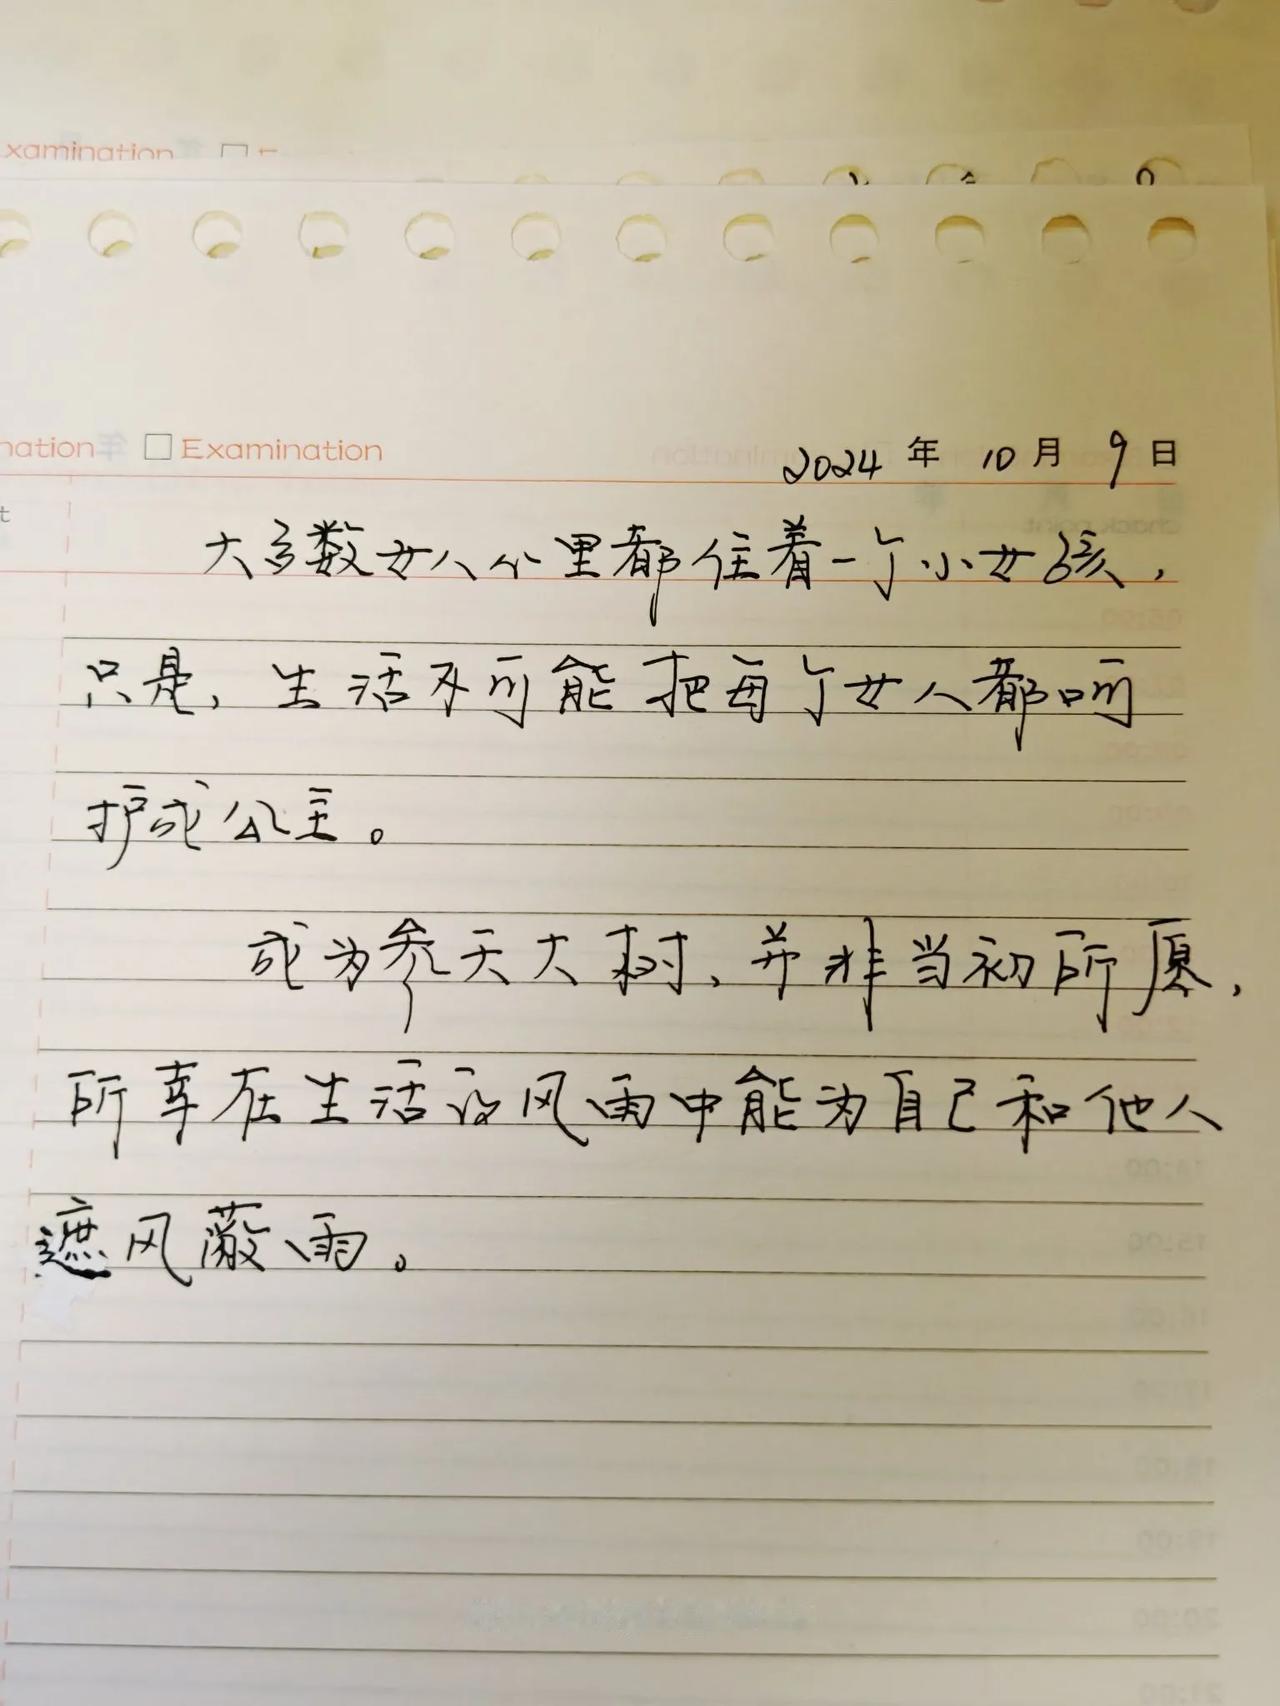 xamination
nation 年 □ Examination
2024 年 10 月 9 日
大多数女人心里都住着一个小女孩，
只是，生活不可能把每个女人都呵
护成公主。
成为参天大树，并非当初所愿，
所幸在生活的风雨中能为自己和他人
遮风蔽雨。